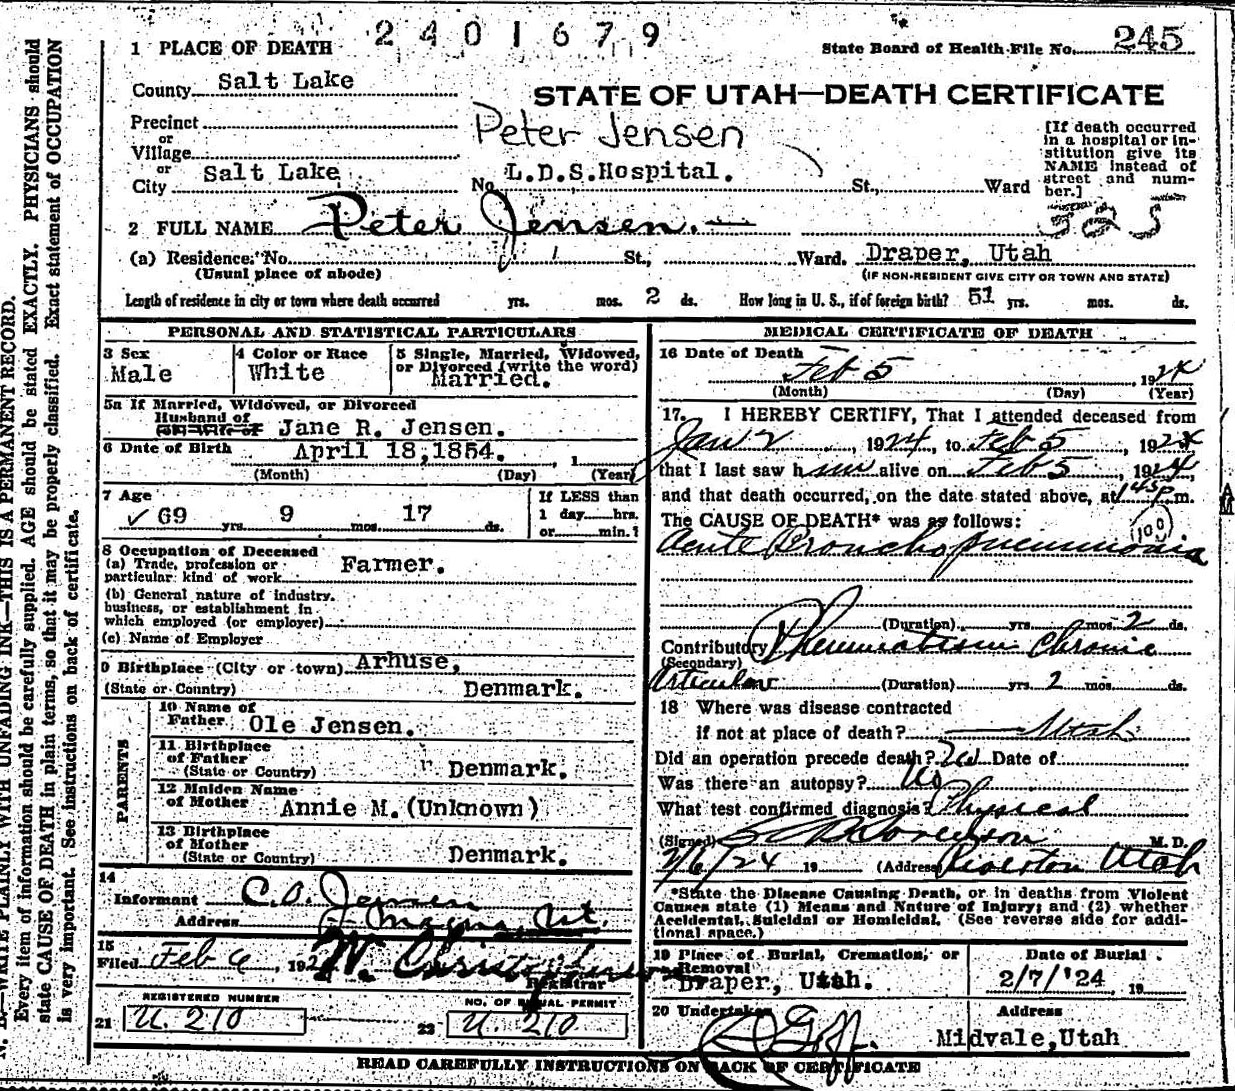 2401679
State Board of Health File No. 245
1 PLACE OF DEATH
County Salt Lake
STATE OF UTAH—DEATH CERTIFICATE
Precinct
or
Village
or
City Salt Lake
Peter Jensen
No. L.D.S.Hospital. St., Ward
[If death occurred
in a hospital or in-
stitution give its
NAME instead of
street and num-
ber.]
2 FULL NAME Peter Jensen.
(a) Residence: No. St., Ward. Draper, Utah
(Usual place of abode)
(IF NON-RESIDENT GIVE CITY OR TOWN AND STATE)
Length of residence in city or town where death occurred yrs. mos. 2 ds. How long in U. S., if of foreign birth? 51 yrs. mos. ds.
PERSONAL AND STATISTICAL PARTICULARS
3 Sex
Male
4 Color or Race
White
5 Single, Married, Widowed,
or Divorced (write the word)
Married.
5a If Married, Widowed, or Divorced
Husband of
(or) Wife of Jane R. Jensen.
6 Date of Birth April 18,1854. , 1
(Month) (Day) (Year)
7 Age
69 yrs. 9 mos. 17 ds.
If LESS than
1 day hrs.
or min.?
8 Occupation of Deceased
(a) Trade, profession or
particular kind of work Farmer.
(b) General nature of industry.
business, or establishment in
which employed (or employer)
(c) Name of Employer
9 Birthplace (City or town) Arhuse,
(State or Country) Denmark.
PARENTS
10 Name of
Father Ole Jensen.
11 Birthplace
of Father
(State or Country) Denmark.
12 Maiden Name
of Mother Annie M.(Unknown)
13 Birthplace
of Mother
(State or Country) Denmark.
14
Informant C.O. Jensen
Address Magna, Ut.
15
Filed Feb 6, 192
Registrar
REGISTERED NUMBER
21 U. 210
NO. OF BURIAL PERMIT
22 U. 210
MEDICAL CERTIFICATE OF DEATH
16 Date of Death
Feb 5 , 1924
(Month) (Day) (Year)
17. I HEREBY CERTIFY, That I attended deceased from
Jan 2 , 1924, to Feb 5 , 1924
that I last saw him alive on Feb 5 , 1924,
and that death occurred, on the date stated above, at 1 45 p.m.
The CAUSE OF DEATH* was as follows:
100
Acute Broncho pneumonia
(Duration) yrs. mos. 2 ds.
Contributory Rheumatism Chronic
(Secondary)
Articular (Duration) yrs. 2 mos. ds.
18 Where was disease contracted
if not at place of death? Utah
Did an operation precede death? No Date of
Was there an autopsy? No
What test confirmed diagnosis? Physical
(Signed) M. D.
2/6/24 19 (Address) Riverton Utah
*State the Disease Causing Death, or in deaths from Violent
Causes state (1) Means and Nature of Injury; and (2) whether
Accidental, Suicidal or Homicidal. (See reverse side for addi-
tional space.)
19 Place of Burial, Cremation, or
Removal
Draper, Utah.
Date of Burial
2/7/'24 19
20 Undertaker
D Goff.
Address
Midvale,Utah
READ CAREFULLY INSTRUCTIONS ON BACK OF CERTIFICATE
N. B.—WRITE PLAINLY WITH UNFADING INK—THIS IS A PERMANENT RECORD.
Every item of information should be carefully supplied. AGE should be stated EXACTLY. PHYSICIANS should
state CAUSE OF DEATH in plain terms, so that it may be properly classified. Exact statement of OCCUPATION
is very important. See instructions on back of certificate.